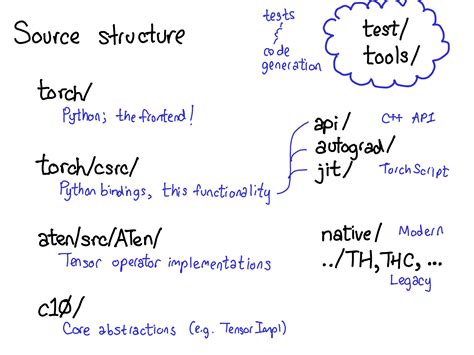 Source structure
tests
&
code
generation
test/
tools/
torch/
Python; the frontend!
torch/csrc/
Python bindings, this functionality
api/ C++ API
autograd/
jit/ TorchScript
aten/src/ATen/
Tensor operator implementations
native/ Modern
../TH, THC, ...
Legacy
c10/
Core abstractions (e.g. TensorImpl)